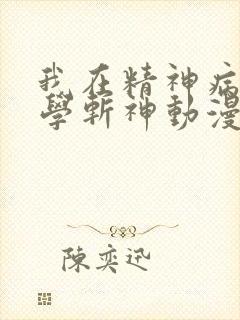 我在精神病
學斬神動漫
陳奕迅